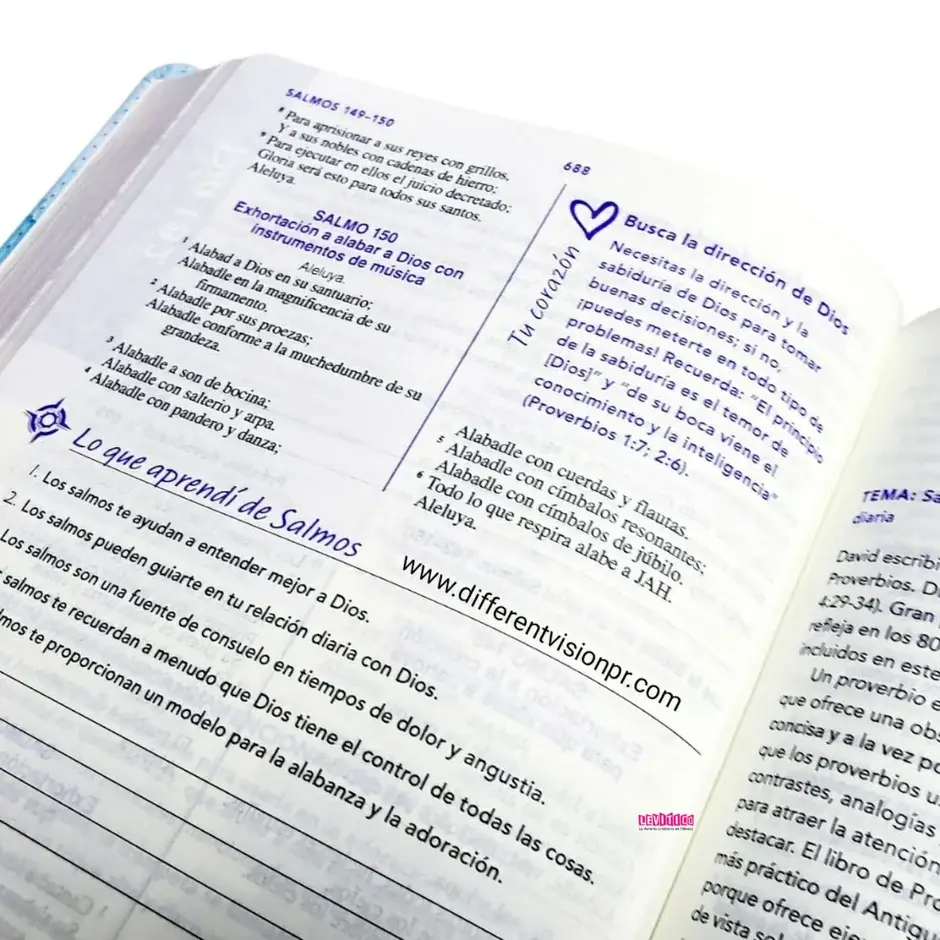 SALMOS 149–150
688
8 Para aprisionar a sus reyes con grillos,
Y a sus nobles con cadenas de hierro;
9 Para ejecutar en ellos el juicio decretado;
Gloria será esto para todos sus santos.
Aleluya.
SALMO 150
Exhortación a alabar a Dios con
instrumentos de música
Aleluya.
1 Alabad a Dios en su santuario;
Alabadle en la magnificencia de su
firmamento.
2 Alabadle por sus proezas;
Alabadle conforme a la muchedumbre de su
grandeza.
3 Alabadle a son de bocina;
Alabadle con salterio y arpa.
4 Alabadle con pandero y danza;
Tu corazón
Busca la dirección de Dios
Necesitas la dirección y la
sabiduría de Dios para tomar
buenas decisiones; si no,
¡puedes meterte en todo tipo de
problemas! Recuerda: "El principio
de la sabiduría es el temor de
[Dios]" y "de su boca viene el
conocimiento y la inteligencia"
(Proverbios 1:7; 2:6).
Alabadle con cuerdas y flautas.
5 Alabadle con címbalos resonantes;
Alabadle con címbalos de júbilo.
6 Todo lo que respira alabe a JAH.
Aleluya.
Lo que aprendí de Salmos
1. Los salmos te ayudan a entender mejor a Dios.
2. Los salmos pueden guiarte en tu relación diaria con Dios.
Los salmos son una fuente de consuelo en tiempos de dolor y angustia.
salmos te recuerdan a menudo que Dios tiene el control de todas las cosas.
te proporcionan un modelo para la alabanza y la adoración.
www.differentvisionpr.com
LEVÍTICO
TEMA:
diaria
David
Proverbios.
4:29-34). Gran
refleja en los 80
incluidos en este
Un proverbio
que ofrece una
concisa y a la vez
que los proverbios
contrastes, analogías
para atraer la atención
destacar. El libro de
más práctico del
porque ofrece
de vista